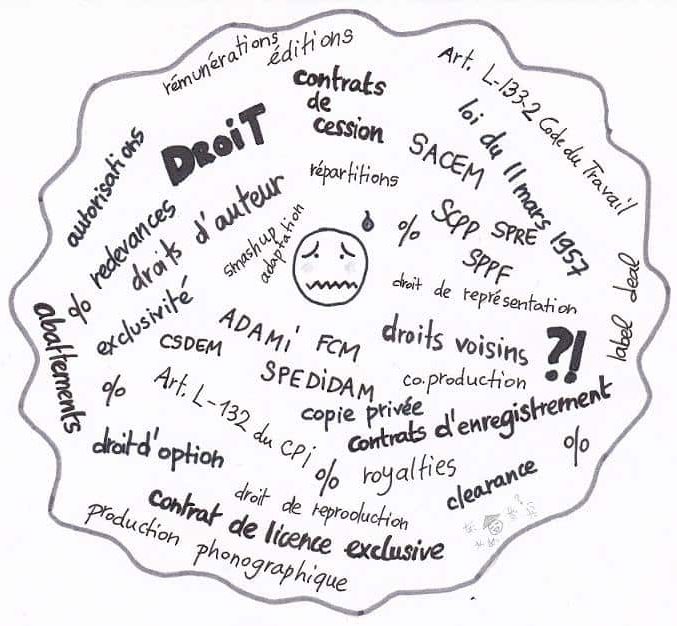 rémunérations
éditions
contrats
de
cession
Art. L-133-2 Code du Travail
loi du 11 mars 1957
DROiT
SACEM
autorisations
répartitions
redevances
droits d'auteur
smashup
adaptation
%
SCPP SPRE
SPPF
droit de représentation
label deal
%
exclusivité
abattements
CSDEM
ADAMi FCM
droits voisins ?!
SPEDiDAM
co.production
%
Art. L-132 du CPi
copie privée
contrats d'enregistrement
droit d'option
%
royalties
%
clearance
droit de reproduction
contrat de licence exclusive
production phonographique